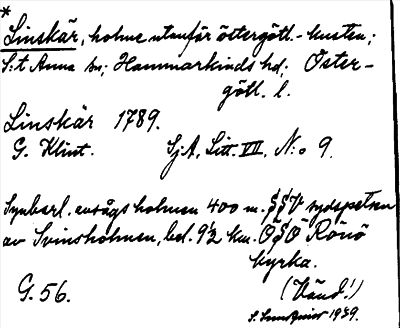 *
Linskär, holme utanför östergötl.-kusten;
S:t Anna sn; Hammarkinds hd; Öster-
götl. l.
Linskär 1789.
G. Klint. SjA, Litt. VII, N:o 9.
Synbarl. avsågs holmen 400 m. S§V sydspetsen
av Svinsholmen, bel. 9½ km. O§Ö Rönö
kyrka.
(Vänd!)
G. 56.
S. 1939.